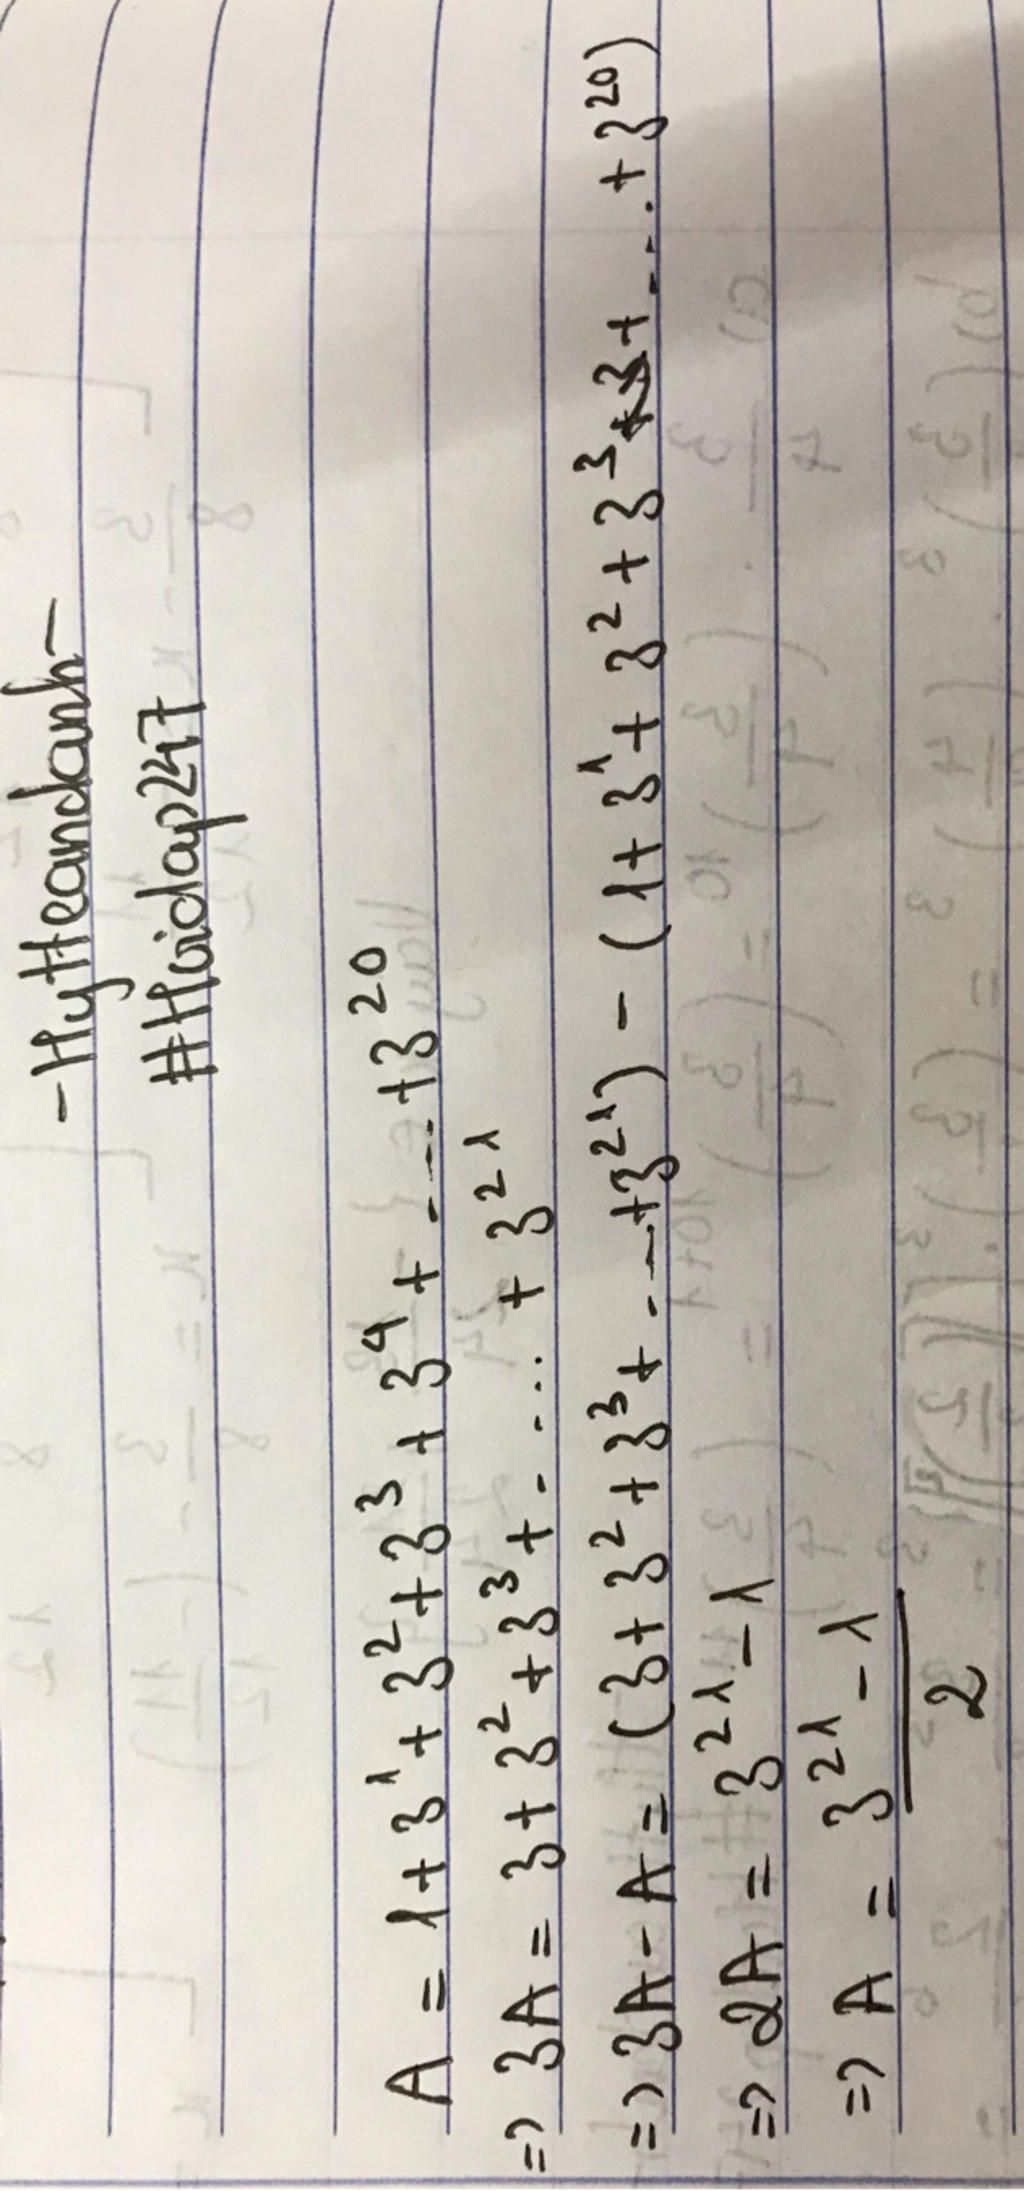 -HyHeandanh-
#Hoidap247
A = 1 + 3¹ + 3² + 3³ + 3⁴ + .... + 3²⁰
=> 3A = 3 + 3² + 3³ + ..... + 3²¹
=> 3A - A = (3 + 3² + 3³ + .... + 3²¹) - (1 + 3¹ + 3² + 3³ + .... + 3²⁰)
=> 2A = 3²¹ - 1
=> A = 3²¹ - 1
2